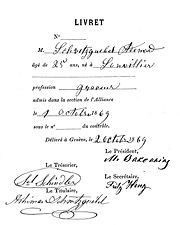 LIVRET
N°
M. Schwitzguébel Adhémar
âgé de 25 ans, né à Sonvillier
profession graveur
admis dans la section de l'Alliance
le 1 Octobre 1869
sous le n° du contrôle.
Délivré à Genève, le 2 Octobre 1869
Le Président,
M. Bakounine
Le Trésorier, Le Secrétaire,
Ch. Schindler Fritz Heng
Le Titulaire,
Adhémar Schwitzguébel